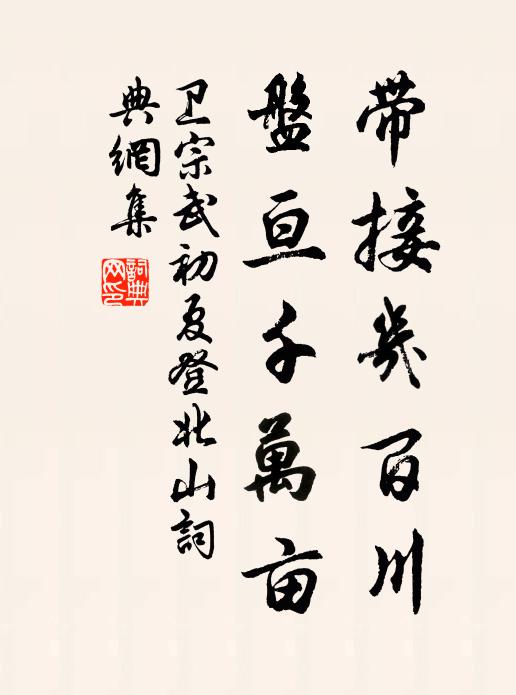 带接几百川
盤亘千萬亩
卫宗武初夏登北山詞
典網集
詞典网印